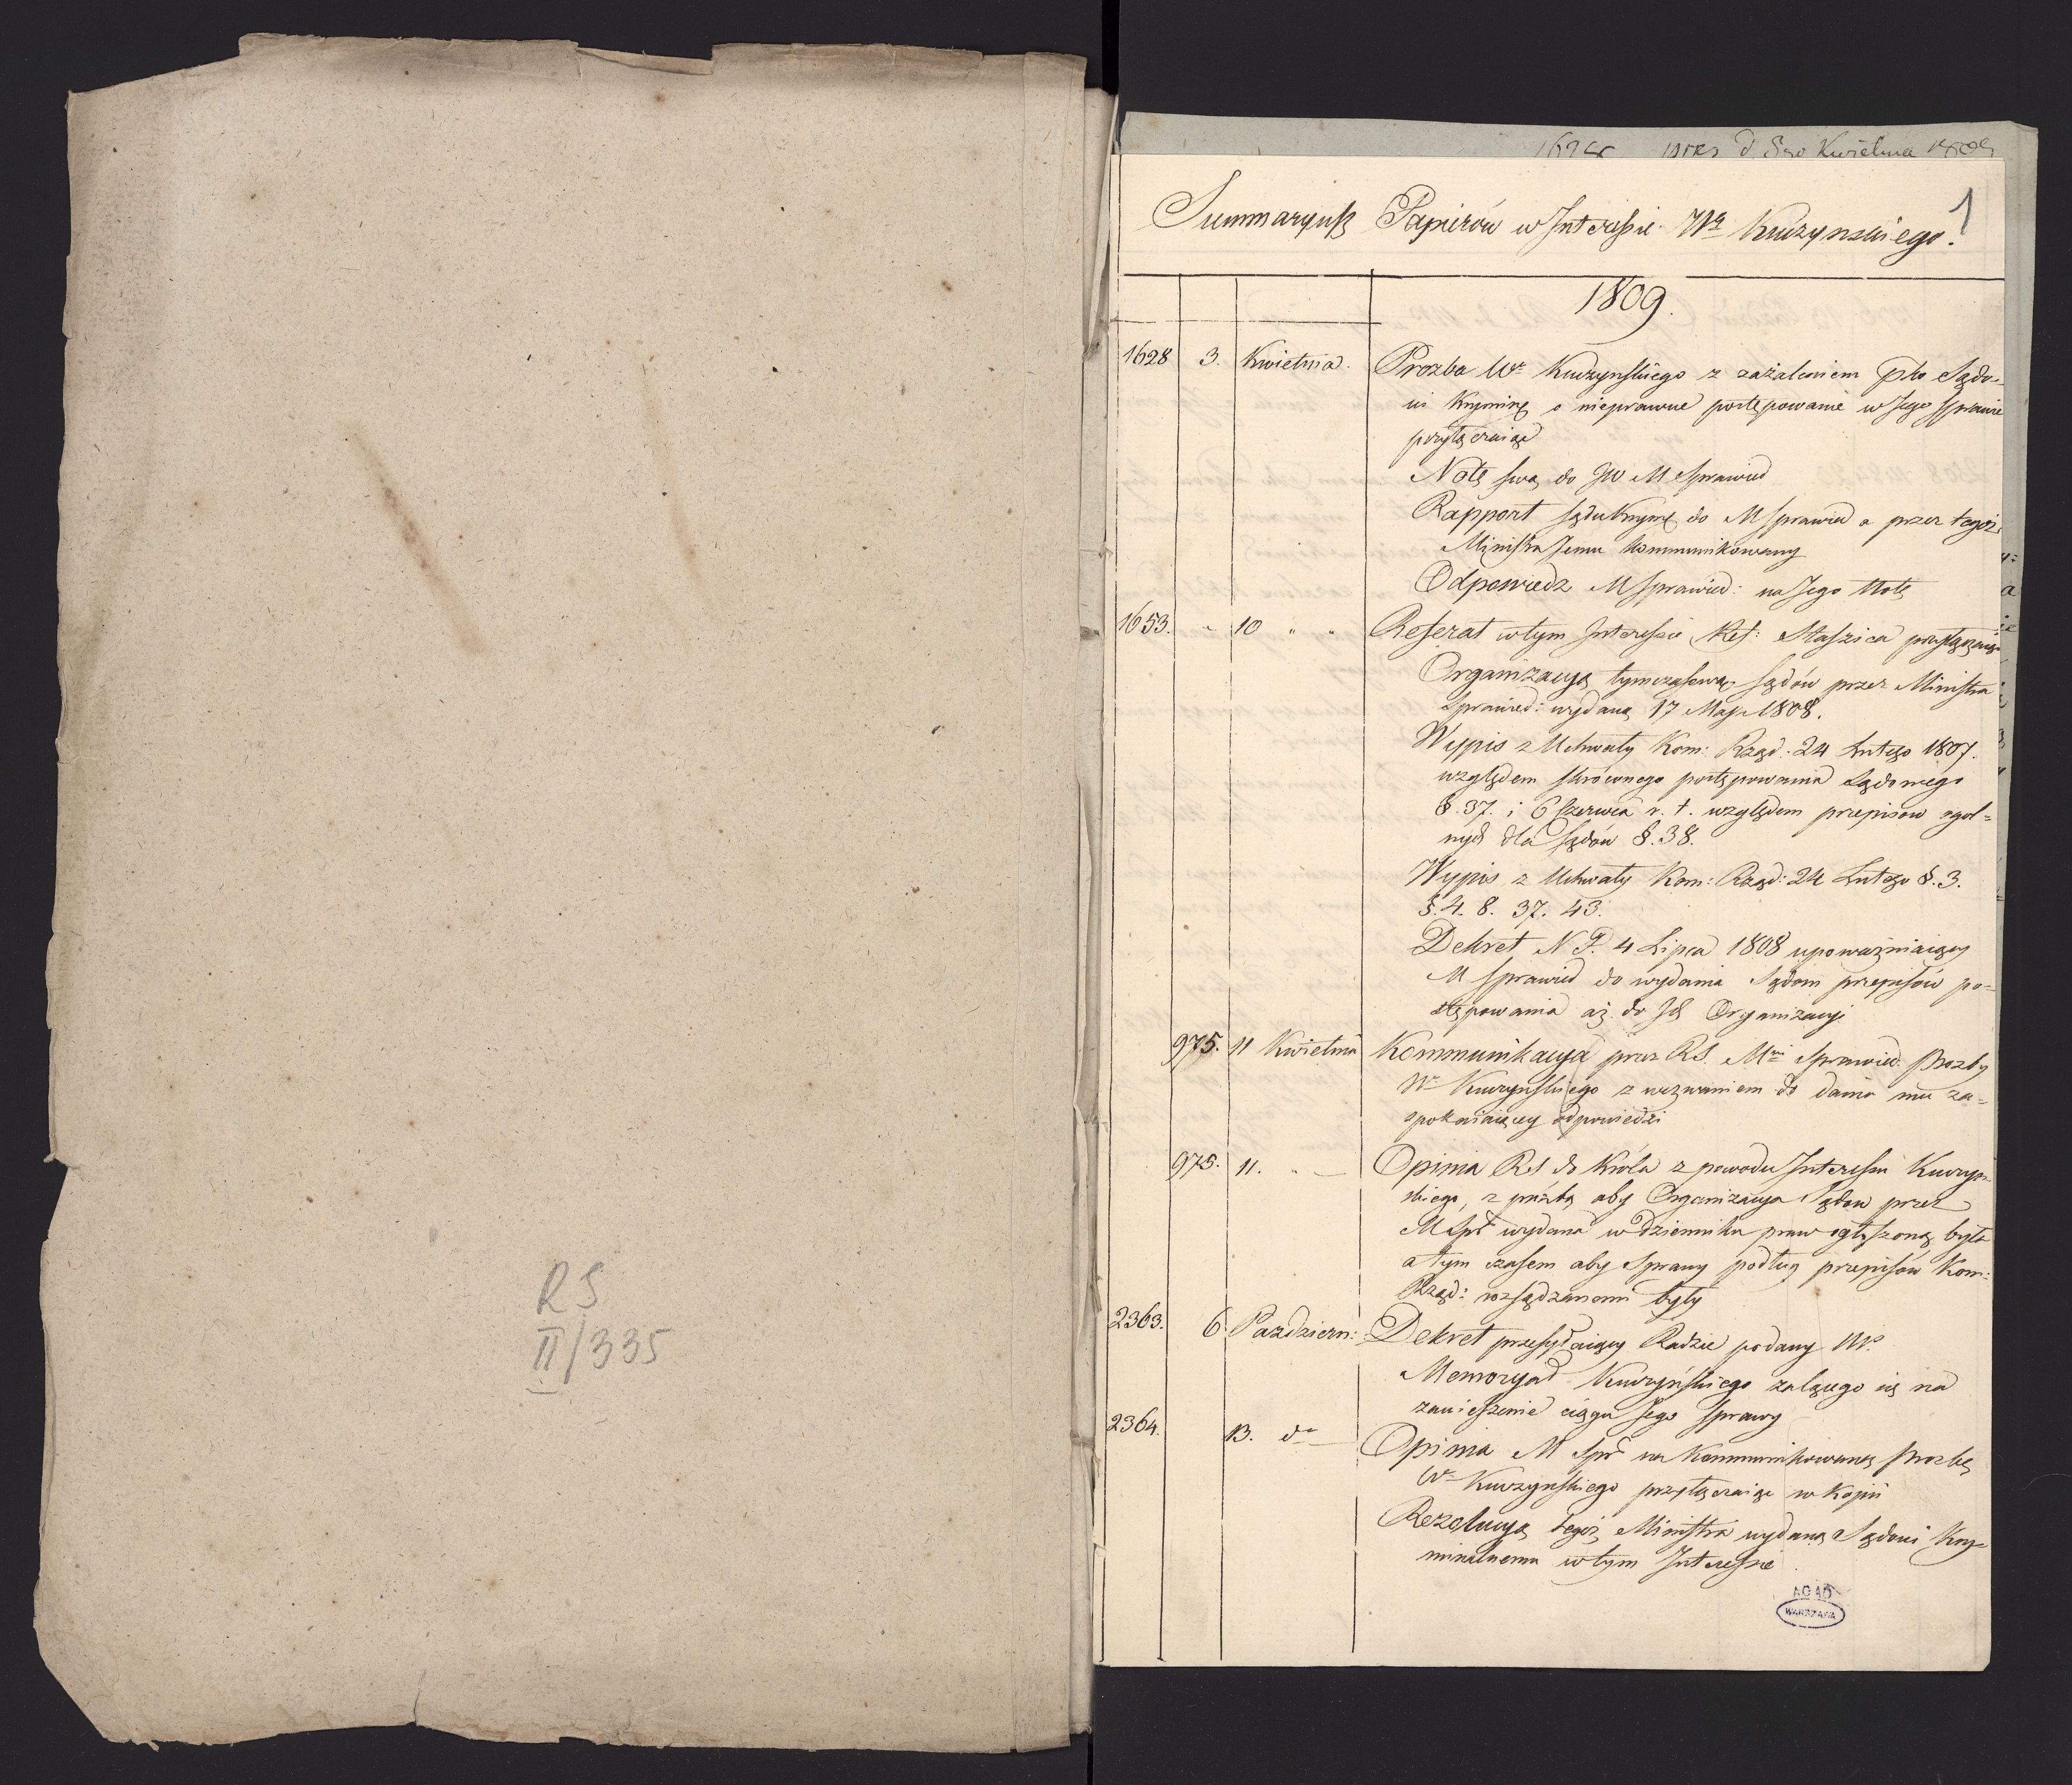 RS
II/335
d. 3go Kwietnia 1809
1
Summaryusz Papierów w Interessie Wo Kuczynskiego.
1809.
1628 3. Kwietnia. Prozba Wo Kuczynskiego z zażaleniem pko Sądo-
wi Krymin. o nieprawne postępowanie w Jego Sprawie
przyłączaiąc
Notę swą do JW M Sprawied
Rapport Sądu Krymi. do M Sprawied a przez tegoż
Ministra Jemu kommunikowany
Odpowiedz M Sprawied: na Jego Notę
1653. " 10 " " Referat w tym Interessie Ref: Staszica przyłączaiąc
Organizacyą tymczasową Sądów przez Ministra
Sprawied: wydaną 17 Maja 1808.
Wypis z Uchwały Kom: Rząd: 24 Lutego 1807.
względem skróconego postępowania Sądowego
§. 37. i 6 Czerwca r. t. względem przepisow ogol=
nych dla Sądów §. 38.
Wypis z Uchwały Kom: Rząd: 24 Lutego §. 3.
§. 4. 8. 37. 43.
Dekret N. P. 4 Lipca 1808 upoważniaiący
M Sprawied do wydania Sądom przepisów po=
stępowania aż do Ich Organizacyi
975. 11 Kwietnia Kommunikacya przez RS. Mwi Sprawied. Prozby
Wo Kuczynskiego z wezwaniem do dania mu za=
spokaiaiącey odpowiedzi
975. 11. " — Opinia RS do Króla z powodu Interessu Kuczyn-
skiego, z prozbą aby Organizacya Sądow przez
M Spr wydana w dzienniku praw ogłoszoną była
a tym czasem aby Sprawy podług przepisów Kom:
Rząd: rozsądzanemi były
2363. 6. Pazdziern: Dekret przesyłaiący Radzie podany
Memoryał Kuczyńskiego żalącego się na
zawieszenie ciągu Jego Sprawy
2364. 13. do — Opinia M Spr na kommunikowaną Prozbę
Wo Kuczynskiego przyłączaiąc w Kopii
Rezolucyą tegoż Ministra wydaną Sądowi Kry=
minalnemu w tym Interessie
AGAD
WARSZAWA